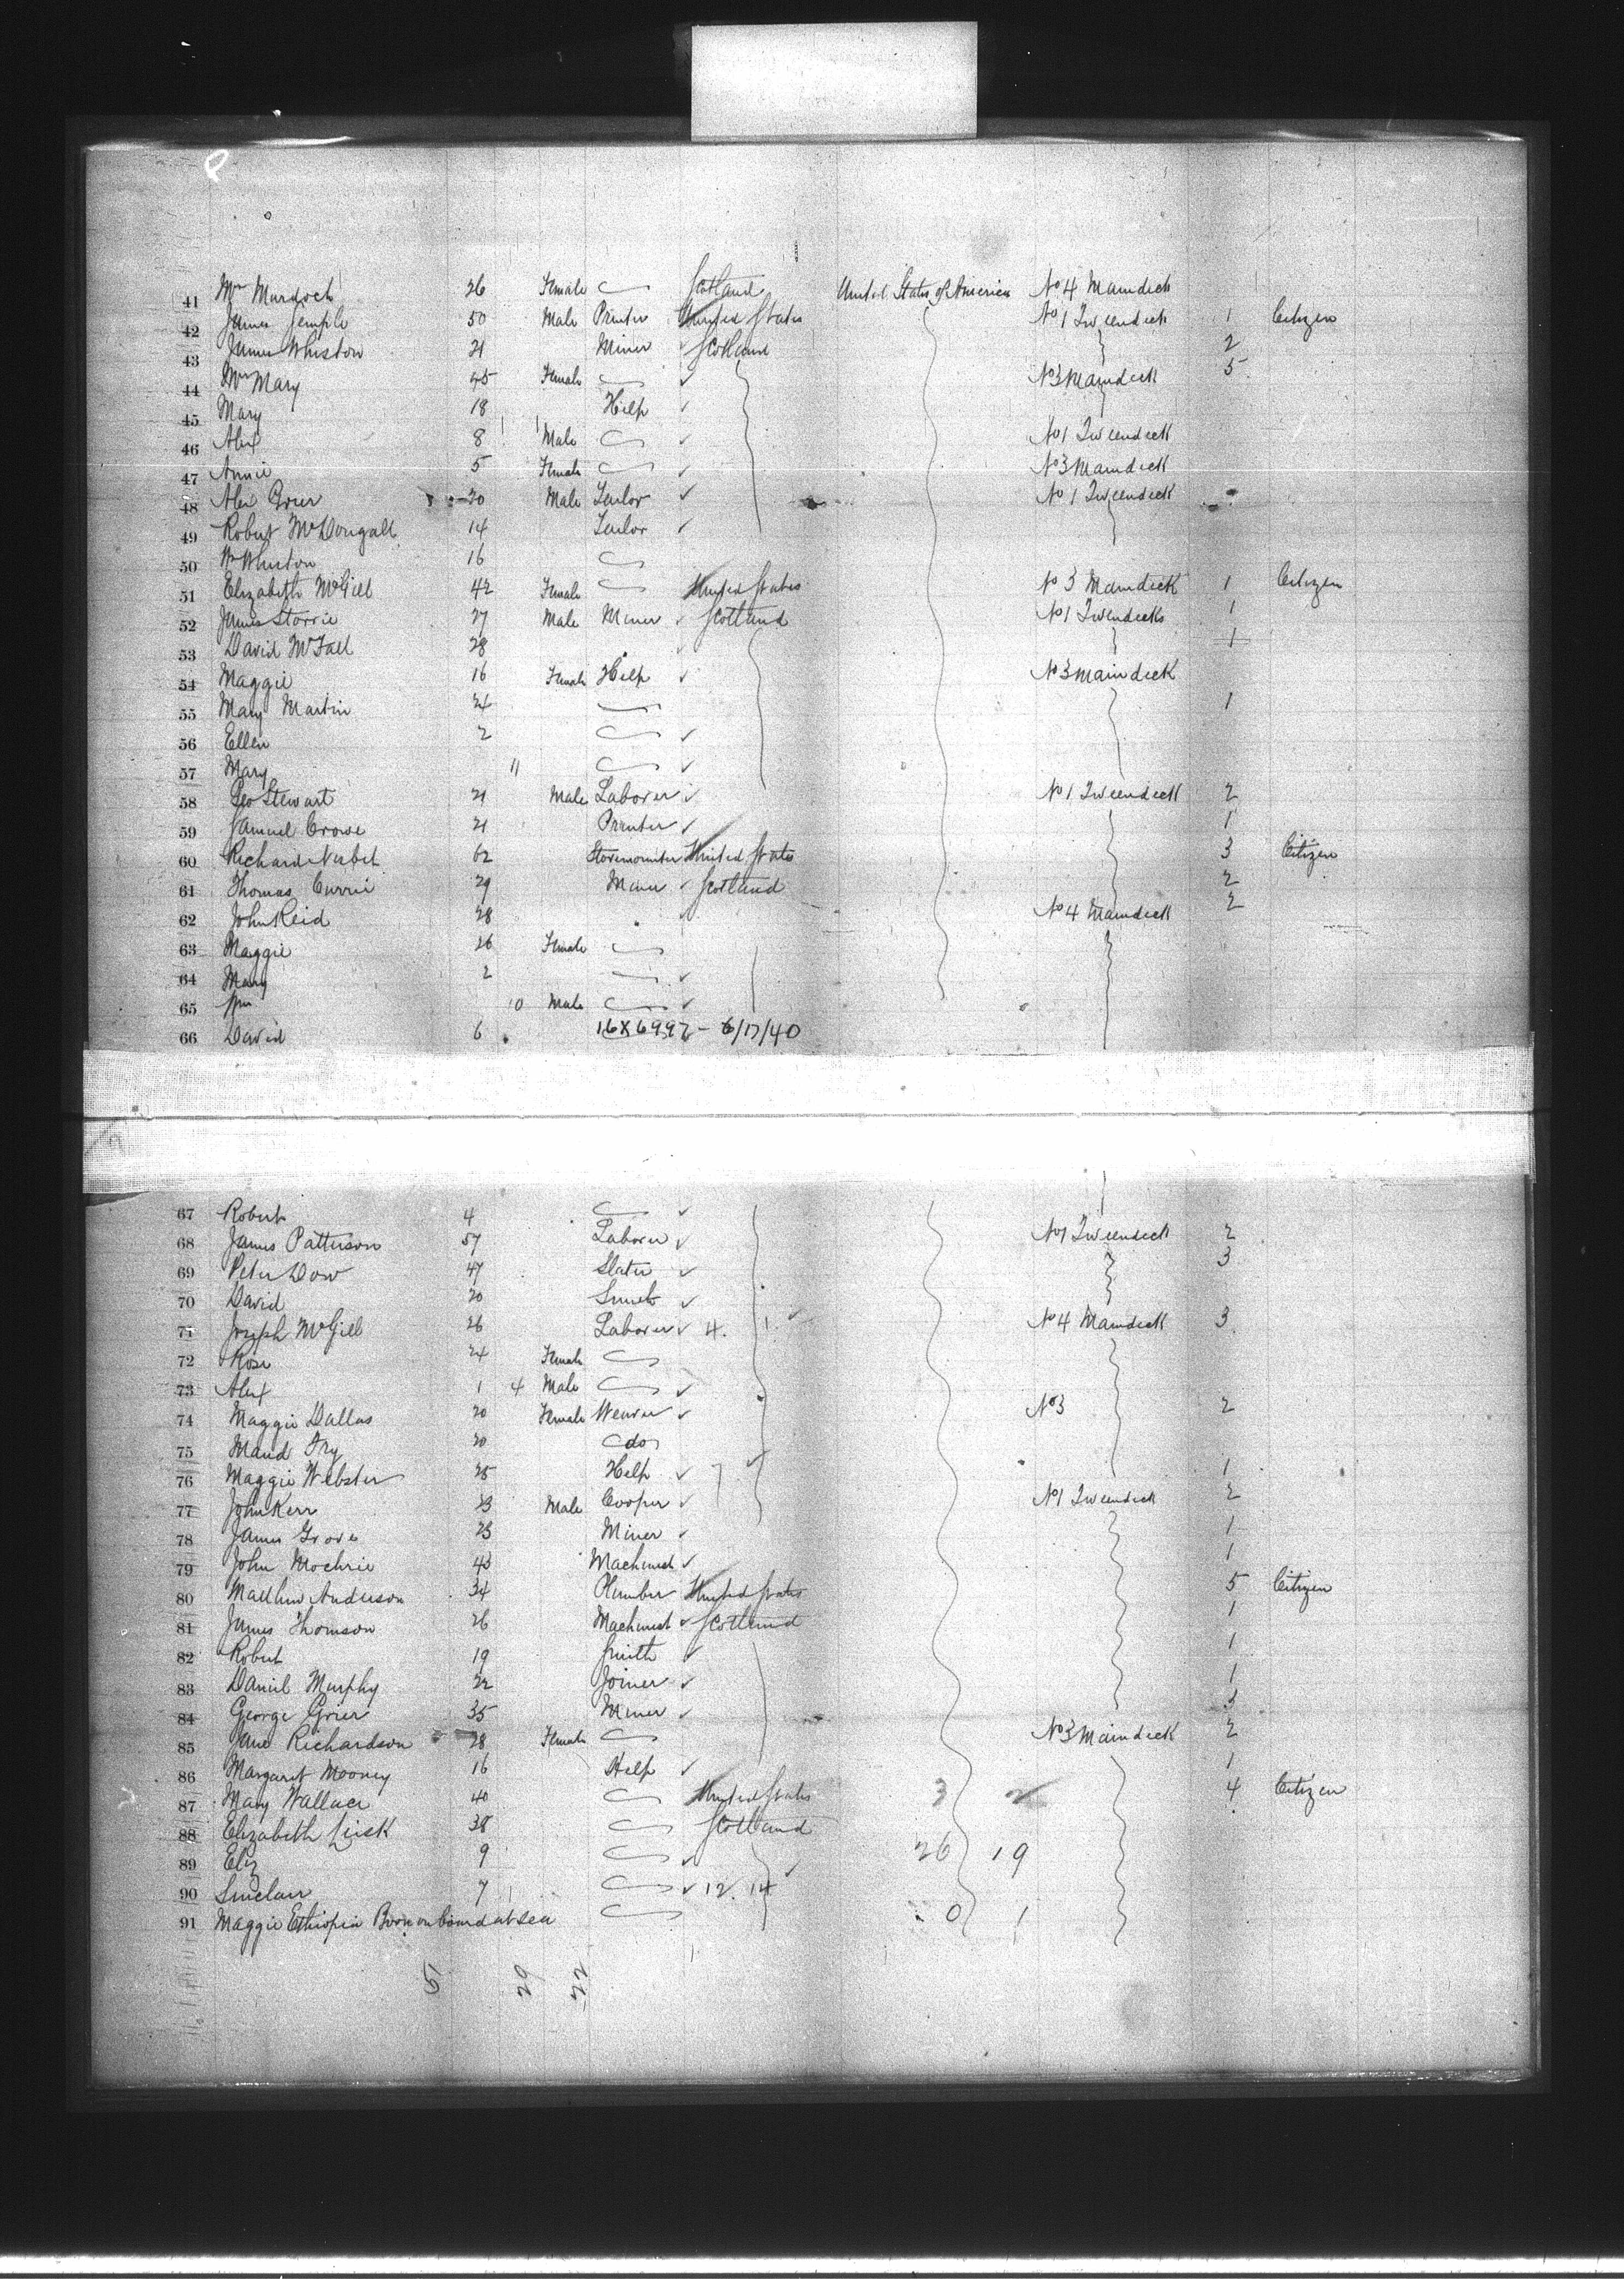 41 Mrs Murdoch 26 Female Scotland United States of America No 4 Maindeck
42 James Temple 50 Male Printer United States No 1 Tweendeck 1 Citizen
43 James Whiston 21 Miner Scotland 2
44 Mrs Mary 45 Female No 3 Maindeck 5
45 Mary 18 Help
46 Alex 8 Male No 1 Tweendeck
47 Annie 5 Female No 3 Maindeck
48 Alex Grier 20 Male Tailor No 1 Tweendeck
49 Robert McDougall 14 Tailor
50 Wm Whiston 16
51 Elizabeth McGill 42 Female United States No 3 Maindeck 1 Citizen
52 James Storrie 27 Male Miner Scotland No 1 Tweendecks 1
53 David McFall 28 1
54 Maggie 16 Female Help No 3 Maindeck
55 Mary Martin 24 1
56 Ellen 2
57 Mary 11
58 Geo Stewart 21 Male Laborer No 1 Tweendeck 2
59 Samuel Crowe 21 Printer 1
60 Richard Nisbet 62 United States 3 Citizen
61 Thomas Currie 29 Miner Scotland 2
62 John Reid 28 No 4 Maindeck 2
63 Maggie 26 Female
64 Mary 2
65 Wm 10 Male
66 David 6 16X6997 - 6/17/40
67 Robert 4
68 James Patterson 57 Laborer No 1 Tweendeck 2
69 Peter Dow 47 Slater 3
70 David 20
71 Joseph McGill 26 Laborer 4. 1. No 4 Maindeck 3
72 Rose 24 Female
73 Alex 1 4 Male
74 Maggie Dallas 20 Female Weaver No 3 2
75 Maud Fry 20 do
76 Maggie Webster 25 Help 7 1
77 John Kerr 23 Male Cooper No 1 Tweendeck 2
78 James Grove 23 Miner 1
79 John Mochrie 43 Machinist 1
80 Matthew Anderson 34 Plumber United States 5 Citizen
81 James Thomson 26 Machinist Scotland 1
82 Robert 19 Smith 1
83 Daniel Murphy 22 Joiner 1
84 George Grier 35 Miner 3
85 Jane Richardson 28 Female No 3 Maindeck 2
86 Margaret Mooney 16 Help 1
87 Mary Wallace 40 United States 3 2 4 Citizen
88 Elizabeth Leisk 38 Scotland
89 Eliz 9 26 19
90 Sinclair 7 12. 14
91 Maggie Ethiopia Born on board at sea 0 1
51 29 22